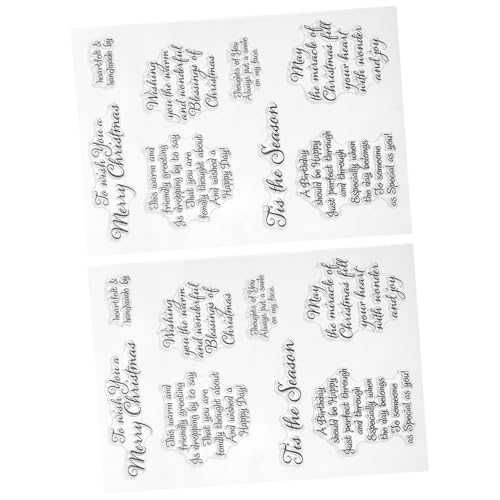 heartfelt &
handmade by
Wishing
you the warm
and wonderful
Blessings of
Christmas
Thoughts of You
Always put a smile
on my face
May
the miracle of
Christmas fill
your heart
with wonder
and joy
To wish You a
Merry Christmas
This warm and
friendly greeting
Is dropping by to say
That you are
fondly thought about
And wished a
Happy Day!
Tis the Season
A Birthday
should be Happy
Just perfect through
and through
Especially when
the day belongs
To someone
as Special as you!
heartfelt &
handmade by
Wishing
you the warm
and wonderful
Blessings of
Christmas
Thoughts of You
Always put a smile
on my face
May
the miracle of
Christmas fill
your heart
with wonder
and joy
To wish You a
Merry Christmas
This warm and
friendly greeting
Is dropping by to say
That you are
fondly thought about
And wished a
Happy Day!
Tis the Season
A Birthday
should be Happy
Just perfect through
and through
Especially when
the day belongs
To someone
as Special as you!